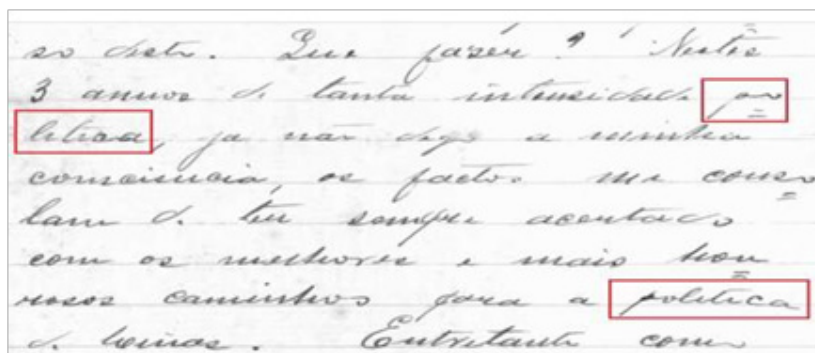 so deste. Que fazer? Nestes
3 annos de tanta intensidade po=
litica, ja não digo a minha
consciencia, os factos me conso=
lam de ter sempre acertado
com os melhores e mais hon=
rosos caminhos para a politica
de Minas. Entretanto como